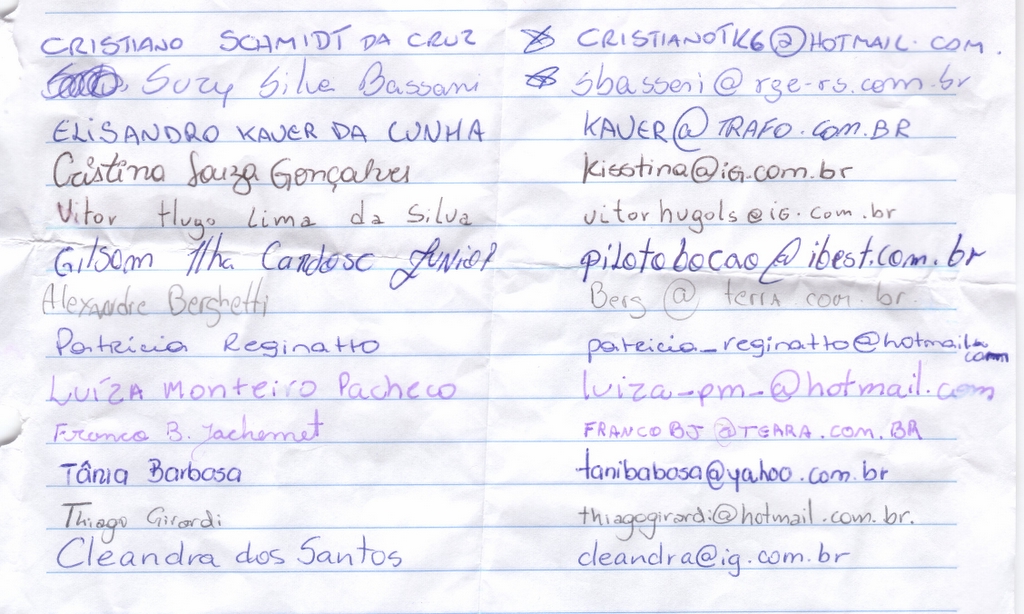 CRISTIANO SCHMIDT DA CRUZ CRISTIANOTK6@HOTMAIL.COM.
Suzy Silva Bassani sbasseni@rge-rs.com.br
ELISANDRO KAUER DA CUNHA KAUER@TRAFO.COM.BR
Cristina Souza Gonçalves kisstina@ig.com.br
Vitor Hugo Lima da Silva vitorhugols@ig.com.br
Gilson Ilha Cardoso Junior pilotobocao@ibest.com.br
Alexandre Berghetti Berg@terra.com.br.
Patricia Reginatto patricia_reginatto@hotmail.com
Luíza Monteiro Pacheco luiza_pm_@hotmail.com
Franco B. Jachemet FRANCOBJ@TERRA.COM.BR
Tânia Barbosa tanibabosa@yahoo.com.br
Thiago Girardi thiagogirardi@hotmail.com.br.
Cleandra dos Santos cleandra@ig.com.br